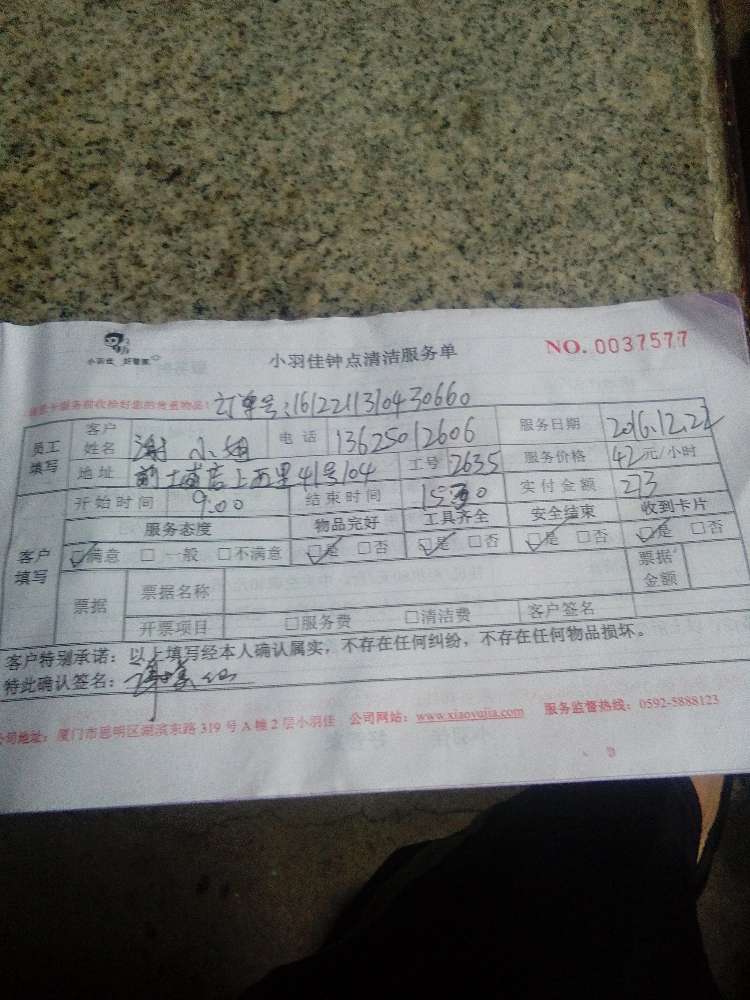 小羽佳 好管家
小羽佳钟点清洁服务单
NO. 0037577
订单号:1612211310430660
员工填写 客户姓名 谢小姐 电话 13625012606 服务日期 2016.12.22
地址 前埔店上西里41号104 工号 2635 服务价格 42元/小时
客户填写 开始时间 9.00 结束时间 15:30 实付金额 273
服务态度 物品完好 工具齐全 安全结束 收到卡片
□满意 □一般 □不满意 □是 □否 □是 □否 □是 □否 □是 □否
票据 票据名称 票据金额
开票项目 □服务费 □清洁费 客户签名
客户特别承诺:以上填写经本人确认属实,不存在任何纠纷,不存在任何物品损坏。
特此确认签名:
公司地址:厦门市思明区湖滨东路319号A幢2层小羽佳 公司网站:www.xiaoyujia.com 服务监督热线:0592-5888123